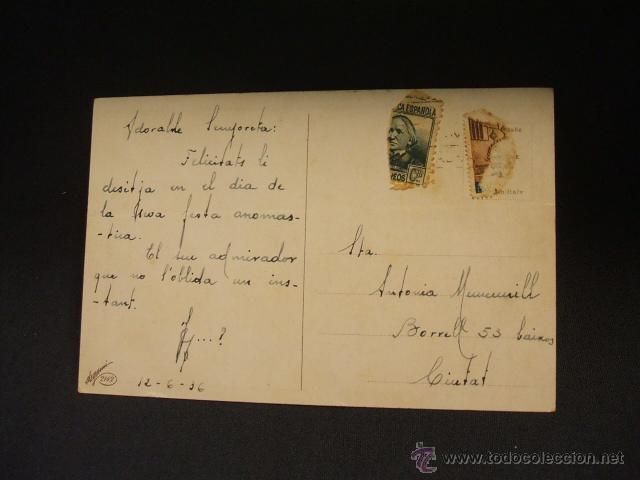 Adorable Senyoreta:
Felicitats li
desitja en el dia de
la seva festa anomas-
-tica.
El seu admirador
que no l'oblida un ins-
-tant.
J...?
12-6-36
2102
CA ESPAÑOLA
REOS
Sta.
Antonia Muncunill
Borrell 53 baixos
Ciutat
www.todocoleccion.net